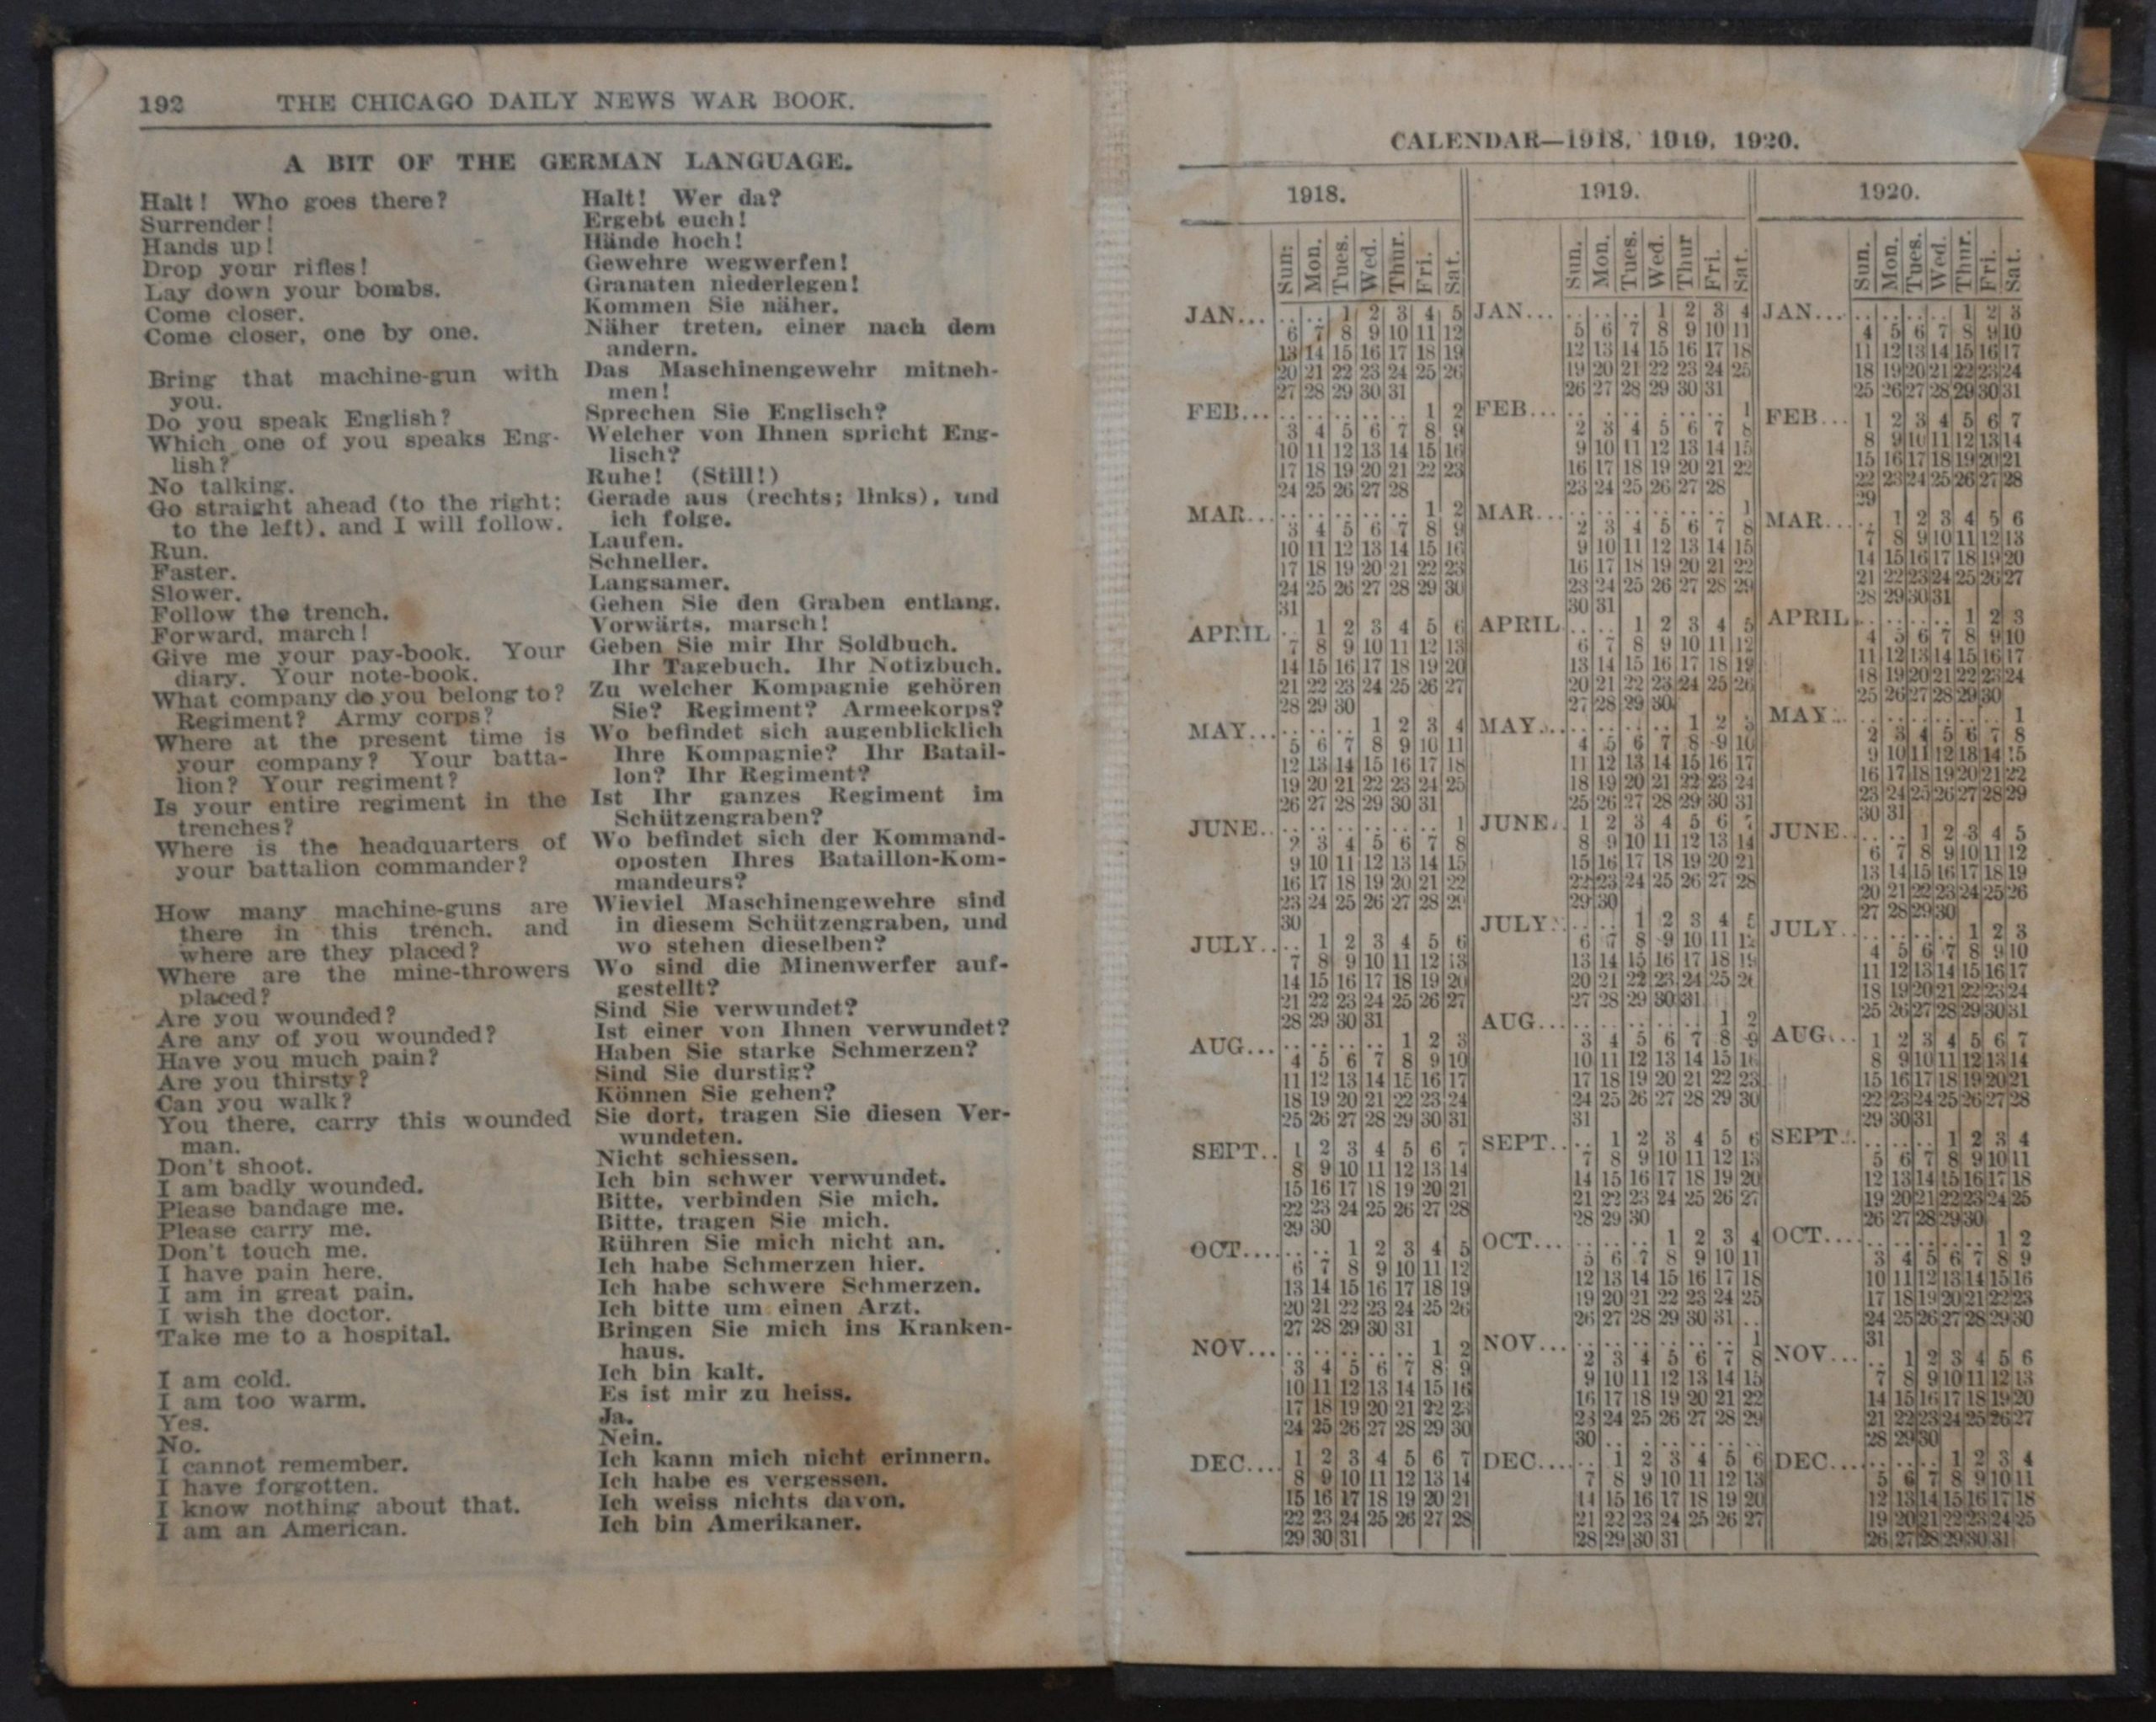 192 THE CHICAGO DAILY NEWS WAR BOOK.
A BIT OF THE GERMAN LANGUAGE.
Halt! Who goes there?
Surrender!
Hands up!
Drop your rifles!
Lay down your bombs.
Come closer.
Come closer, one by one.
Bring that machine-gun with
you.
Do you speak English?
Which one of you speaks Eng-
lish?
No talking.
Go straight ahead (to the right;
to the left), and I will follow.
Run.
Faster.
Slower.
Follow the trench.
Forward, march!
Give me your pay-book. Your
diary. Your note-book.
What company do you belong to?
Regiment? Army corps?
Where at the present time is
your company? Your batta-
lion? Your regiment?
Is your entire regiment in the
trenches?
Where is the headquarters of
your battalion commander?
How many machine-guns are
there in this trench, and
where are they placed?
Where are the mine-throwers
placed?
Are you wounded?
Are any of you wounded?
Have you much pain?
Are you thirsty?
Can you walk?
You there, carry this wounded
man.
Don't shoot.
I am badly wounded.
Please bandage me.
Please carry me.
Don't touch me.
I have pain here.
I am in great pain.
I wish the doctor.
Take me to a hospital.
I am cold.
I am too warm.
Yes.
No.
I cannot remember.
I have forgotten.
I know nothing about that.
I am an American.
Halt! Wer da?
Ergebt euch!
Hände hoch!
Gewehre wegwerfen!
Granaten niederlegen!
Kommen Sie näher.
Näher treten, einer nach dem
andern.
Das Maschinengewehr mitneh-
men!
Sprechen Sie Englisch?
Welcher von Ihnen spricht Eng-
lisch?
Ruhe! (Still!)
Gerade aus (rechts; links), und
ich folge.
Laufen.
Schneller.
Langsamer.
Gehen Sie den Graben entlang.
Vorwärts, marsch!
Geben Sie mir Ihr Soldbuch.
Ihr Tagebuch. Ihr Notizbuch.
Zu welcher Kompagnie gehören
Sie? Regiment? Armeekorps?
Wo befindet sich augenblicklich
Ihre Kompagnie? Ihr Batail-
lon? Ihr Regiment?
Ist Ihr ganzes Regiment im
Schützengraben?
Wo befindet sich der Kommand-
oposten Ihres Bataillon-Kom-
mandeurs?
Wieviel Maschinengewehre sind
in diesem Schützengraben, und
wo stehen dieselben?
Wo sind die Minenwerfer auf-
gestellt?
Sind Sie verwundet?
Ist einer von Ihnen verwundet?
Haben Sie starke Schmerzen?
Sind Sie durstig?
Können Sie gehen?
Sie dort, tragen Sie diesen Ver-
wundeten.
Nicht schiessen.
Ich bin schwer verwundet.
Bitte, verbinden Sie mich.
Bitte, tragen Sie mich.
Rühren Sie mich nicht an.
Ich habe Schmerzen hier.
Ich habe schwere Schmerzen.
Ich bitte um einen Arzt.
Bringen Sie mich ins Kranken-
haus.
Ich bin kalt.
Es ist mir zu heiss.
Ja.
Nein.
Ich kann mich nicht erinnern.
Ich habe es vergessen.
Ich weiss nichts davon.
Ich bin Amerikaner.
CALENDAR—1918, 1919, 1920.
1918.
Sun. Mon. Tues. Wed. Thur. Fri. Sat.
JAN... .. .. 1 2 3 4 5
6 7 8 9 10 11 12
13 14 15 16 17 18 19
20 21 22 23 24 25 26
27 28 29 30 31
FEB... .. .. .. .. .. 1 2
3 4 5 6 7 8 9
10 11 12 13 14 15 16
17 18 19 20 21 22 23
24 25 26 27 28
MAR... .. .. .. .. .. 1 2
3 4 5 6 7 8 9
10 11 12 13 14 15 16
17 18 19 20 21 22 23
24 25 26 27 28 29 30
31
APRIL .. 1 2 3 4 5 6
7 8 9 10 11 12 13
14 15 16 17 18 19 20
21 22 23 24 25 26 27
28 29 30
MAY... .. .. .. 1 2 3 4
5 6 7 8 9 10 11
12 13 14 15 16 17 18
19 20 21 22 23 24 25
26 27 28 29 30 31
JUNE.. .. .. .. .. .. .. 1
2 3 4 5 6 7 8
9 10 11 12 13 14 15
16 17 18 19 20 21 22
23 24 25 26 27 28 29
30
JULY.. .. 1 2 3 4 5 6
7 8 9 10 11 12 13
14 15 16 17 18 19 20
21 22 23 24 25 26 27
28 29 30 31
AUG... .. .. .. .. 1 2 3
4 5 6 7 8 9 10
11 12 13 14 15 16 17
18 19 20 21 22 23 24
25 26 27 28 29 30 31
SEPT.. 1 2 3 4 5 6 7
8 9 10 11 12 13 14
15 16 17 18 19 20 21
22 23 24 25 26 27 28
29 30
OCT... .. .. 1 2 3 4 5
6 7 8 9 10 11 12
13 14 15 16 17 18 19
20 21 22 23 24 25 26
27 28 29 30 31
NOV... .. .. .. .. .. 1 2
3 4 5 6 7 8 9
10 11 12 13 14 15 16
17 18 19 20 21 22 23
24 25 26 27 28 29 30
DEC... 1 2 3 4 5 6 7
8 9 10 11 12 13 14
15 16 17 18 19 20 21
22 23 24 25 26 27 28
29 30 31
1919.
Sun. Mon. Tues. Wed. Thur Fri. Sat.
JAN... .. .. .. 1 2 3 4
5 6 7 8 9 10 11
12 13 14 15 16 17 18
19 20 21 22 23 24 25
26 27 28 29 30 31
FEB... .. .. .. .. .. .. 1
2 3 4 5 6 7 8
9 10 11 12 13 14 15
16 17 18 19 20 21 22
23 24 25 26 27 28
MAR... .. .. .. .. .. .. 1
2 3 4 5 6 7 8
9 10 11 12 13 14 15
16 17 18 19 20 21 22
23 24 25 26 27 28 29
30 31
APRIL .. .. 1 2 3 4 5
6 7 8 9 10 11 12
13 14 15 16 17 18 19
20 21 22 23 24 25 26
27 28 29 30
MAY... .. .. .. .. 1 2 3
4 5 6 7 8 9 10
11 12 13 14 15 16 17
18 19 20 21 22 23 24
25 26 27 28 29 30 31
JUNE.. 1 2 3 4 5 6 7
8 9 10 11 12 13 14
15 16 17 18 19 20 21
22 23 24 25 26 27 28
29 30
JULY.. .. .. 1 2 3 4 5
6 7 8 9 10 11 12
13 14 15 16 17 18 19
20 21 22 23 24 25 26
27 28 29 30 31
AUG... .. .. .. .. .. 1 2
3 4 5 6 7 8 9
10 11 12 13 14 15 16
17 18 19 20 21 22 23
24 25 26 27 28 29 30
31
SEPT.. .. 1 2 3 4 5 6
7 8 9 10 11 12 13
14 15 16 17 18 19 20
21 22 23 24 25 26 27
28 29 30
OCT... .. .. .. 1 2 3 4
5 6 7 8 9 10 11
12 13 14 15 16 17 18
19 20 21 22 23 24 25
26 27 28 29 30 31 ..
NOV... .. .. .. .. .. .. 1
2 3 4 5 6 7 8
9 10 11 12 13 14 15
16 17 18 19 20 21 22
23 24 25 26 27 28 29
30 .. .. .. .. .. ..
DEC... .. 1 2 3 4 5 6
7 8 9 10 11 12 13
14 15 16 17 18 19 20
21 22 23 24 25 26 27
28 29 30 31
1920.
Sun. Mon. Tues. Wed. Thur. Fri. Sat.
JAN... .. .. .. .. 1 2 3
4 5 6 7 8 9 10
11 12 13 14 15 16 17
18 19 20 21 22 23 24
25 26 27 28 29 30 31
FEB... 1 2 3 4 5 6 7
8 9 10 11 12 13 14
15 16 17 18 19 20 21
22 23 24 25 26 27 28
29
MAR... .. 1 2 3 4 5 6
7 8 9 10 11 12 13
14 15 16 17 18 19 20
21 22 23 24 25 26 27
28 29 30 31
APRIL .. .. .. .. 1 2 3
4 5 6 7 8 9 10
11 12 13 14 15 16 17
18 19 20 21 22 23 24
25 26 27 28 29 30
MAY... .. .. .. .. .. .. 1
2 3 4 5 6 7 8
9 10 11 12 13 14 15
16 17 18 19 20 21 22
23 24 25 26 27 28 29
30 31
JUNE.. .. .. 1 2 3 4 5
6 7 8 9 10 11 12
13 14 15 16 17 18 19
20 21 22 23 24 25 26
27 28 29 30
JULY.. .. .. .. .. 1 2 3
4 5 6 7 8 9 10
11 12 13 14 15 16 17
18 19 20 21 22 23 24
25 26 27 28 29 30 31
AUG... 1 2 3 4 5 6 7
8 9 10 11 12 13 14
15 16 17 18 19 20 21
22 23 24 25 26 27 28
29 30 31
SEPT.. .. .. .. 1 2 3 4
5 6 7 8 9 10 11
12 13 14 15 16 17 18
19 20 21 22 23 24 25
26 27 28 29 30
OCT... .. .. .. .. .. 1 2
3 4 5 6 7 8 9
10 11 12 13 14 15 16
17 18 19 20 21 22 23
24 25 26 27 28 29 30
31
NOV... .. 1 2 3 4 5 6
7 8 9 10 11 12 13
14 15 16 17 18 19 20
21 22 23 24 25 26 27
28 29 30
DEC... .. .. .. 1 2 3 4
5 6 7 8 9 10 11
12 13 14 15 16 17 18
19 20 21 22 23 24 25
26 27 28 29 30 31